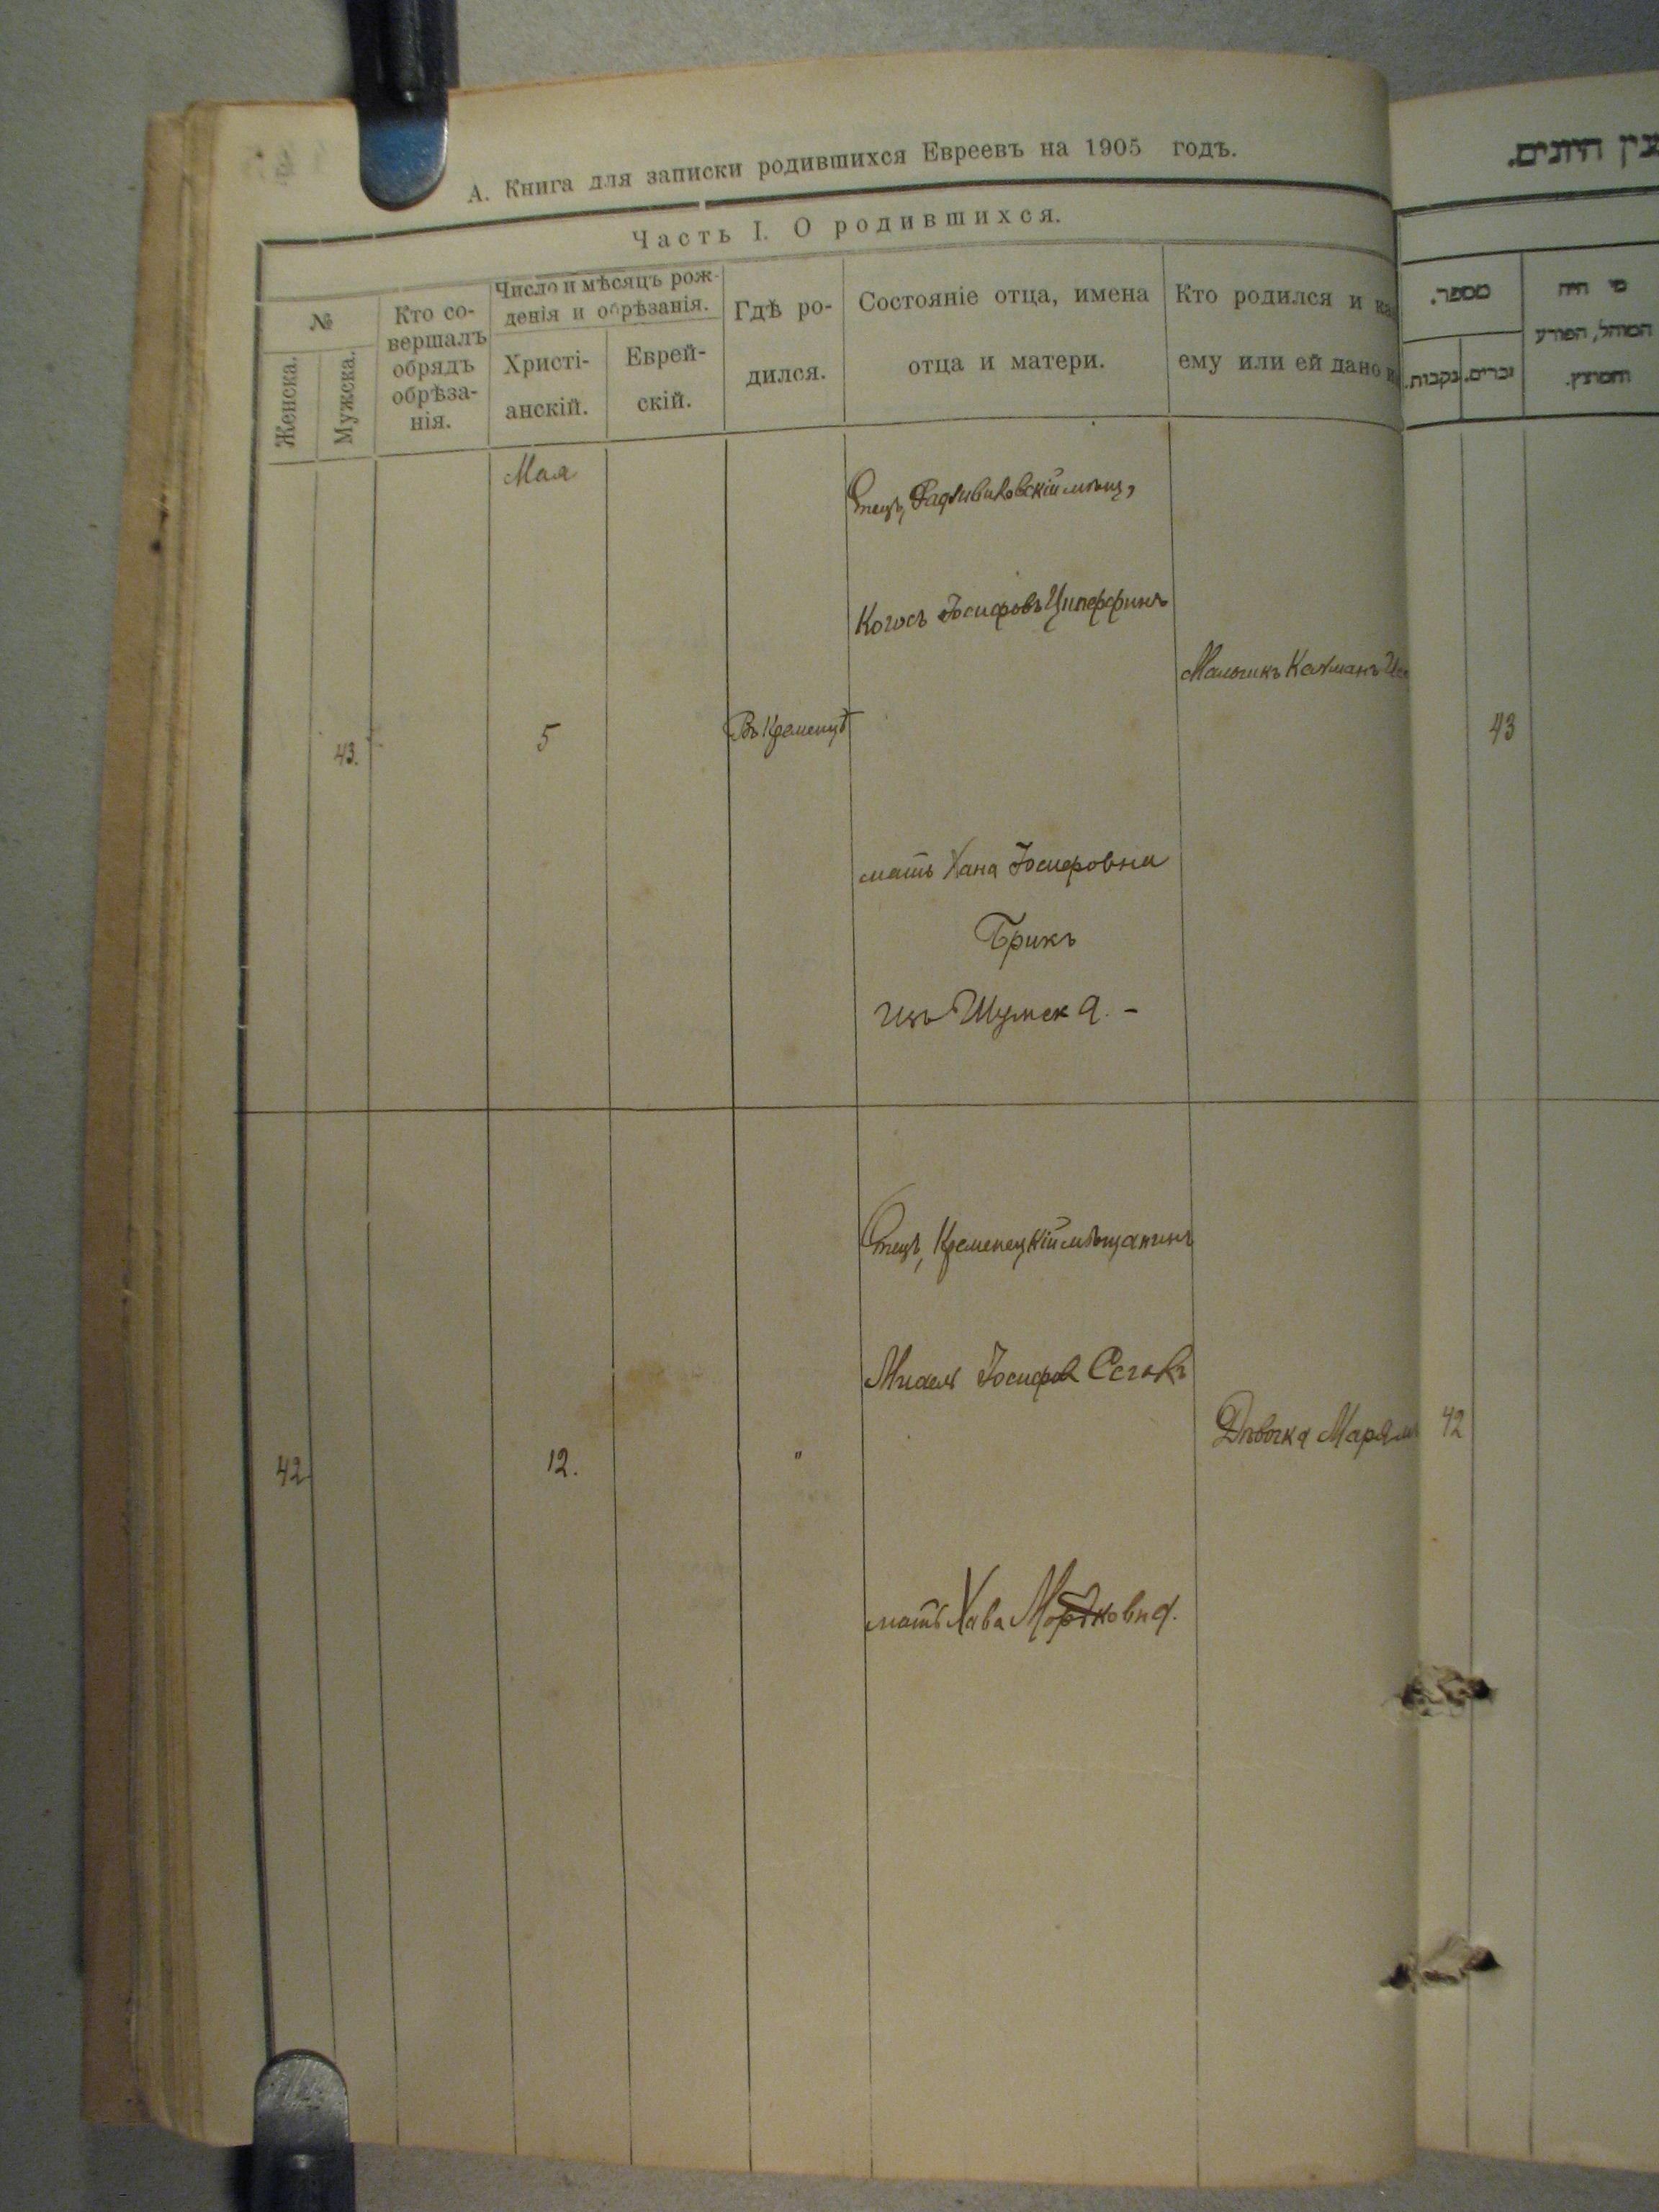 А. Книга для записки родившихся Евреевъ на 1905 годъ.
Часть I. О родившихся.
№
Женска.
Мужска.
Кто со-
вершалъ
обрядъ
обрѣза-
нія.
Число и мѣсяцъ рож-
денія и обрѣзанія.
Христі-
анскій.
Еврей-
скій.
Гдѣ ро-
дился.
Состояніе отца, имена
отца и матери.
Кто родился и ка
ему или ей дано и
Мая
43.
5
Въ Кременцѣ
Отецъ, Радзивиловскій мѣщ,
Іосифовъ Циперфинъ
мать Хана Іосифовна
Брикъ
изъ Шумска. -
Мальчикъ Калманъ
42
12.
"
Отецъ, Кременецкій мѣщанинъ
Іосифов
мать Хава Мордковна.
Дѣвочка Марямъ
מספר.
נקבות.
זכרים.
מי היה
המוהל, הפורע
והמוצץ.
43
42